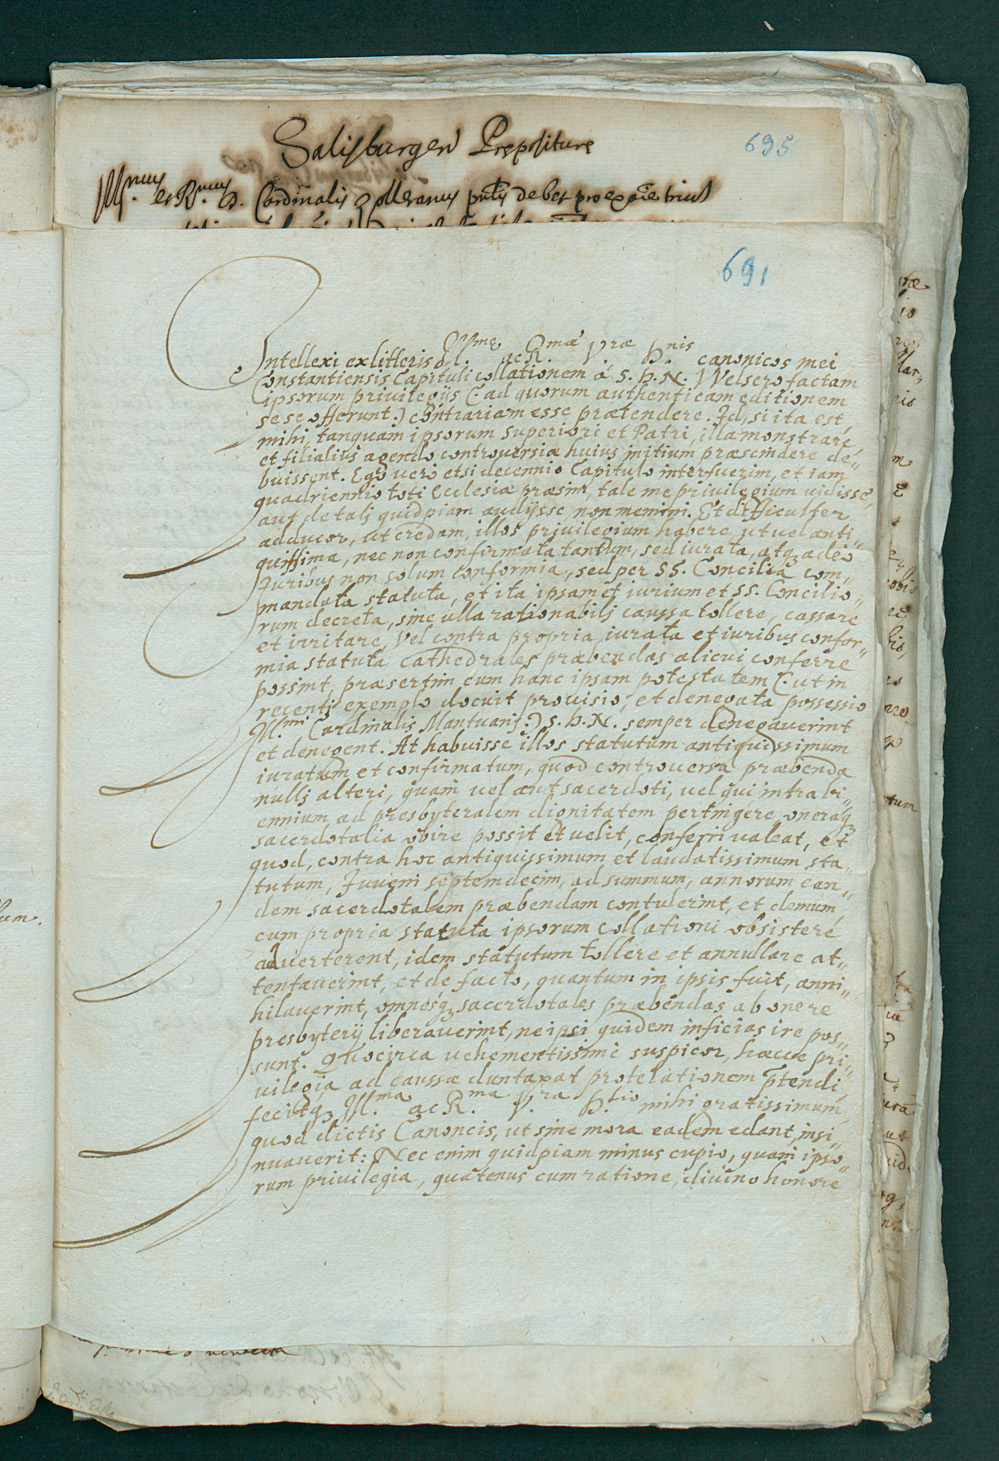 Salisburgen Præpositure
695
Ill.mus et R.mus D. Cardinalis Zolleranus debet pro expe.ne
691
Intellexi ex litteris Ill.me ac R.mæ Vræ D.nis canonicos mei
Constantiensis Capituli collationem á S. D. N. J Velsero factam
ipsorum privilegijs (: ad quorum authenticam editionem
sese offerunt :) contrariam esse prætendere. Id, si ita est
mihi, tanquam ipsorum Superiori et Patri, illa monstrare
et filialius agendo controversiæ huius initium præscindere de„
buissent. Ego vero etsi decennio Capitulo interfuerim, et iam
quadriennio toti Ecclesiæ præsim, tale me privilegium vidisse,
aut de tali quidpiam audijsse non memini. Et difficulter
adducor, ut credam, illos privilegium habere, ut vel anti„
quissima, nec non confirmata tantum, sed iurata, atq3 adeo
Iuribus non solum conformia, sed per SS. Concilia com„
mandata statuta, et ita ipsamet iurium et SS. Concilio„
rum decreta, sine ulla rationabili caussa tollere, cassare
et irritare, Vel contra propria iurata et iuribus confor„
mia statuta Cathedrales præbendas alicui conferre
possint, præsertim cum hanc ipsam potestatem (: ut in
recenti exemplo docuit provisio, et denegata possessio
Ill.mi Cardinalis Mantuani :) S. D. N. semper denegaverint
et denegent. At habuisse illos statutum antiquissimum
iuratum et confirmatum, quod controversa præbenda
nulli alteri, quam vel aut sacerdoti, vel qui intra bi„
ennium ad presbyteralem dignitatem pertingere, oneraq3
sacerdotalia obire possit et velit, conferri valeat, et
quod, contra hoc antiquissimum et laudatissimum sta„
tutum, Iuveni septemdecim, ad summum, annorum ean„
dem sacerdotalem præbendam contulerint, et demum
cum propria statuta ipsorum collationi obsistere
adverterent, idem statutum tollere et annullare at„
tentaverint, et de facto, quantum in ipsis fuit, anni„
hilaverint, omnesq3 sacerdotales præbendas ab onere
presbyterij liberaverint, ne ipsi quidem inficias ire pos„
sunt. Quocirca vehementissime suspicor, hæcce pri„
vilegia ad caussæ duntaxat protelationem ptendi
fecitq3 Ill.ma ac R.ma V.ra D.tio mihi gratissimum
quod dictis Canoncis, ut sine mora eadem edant, insi„
nuaverit: Nec enim quidpiam minus cupio, quam ipso„
rum privilegia, quatenus cum ratione, divino honore